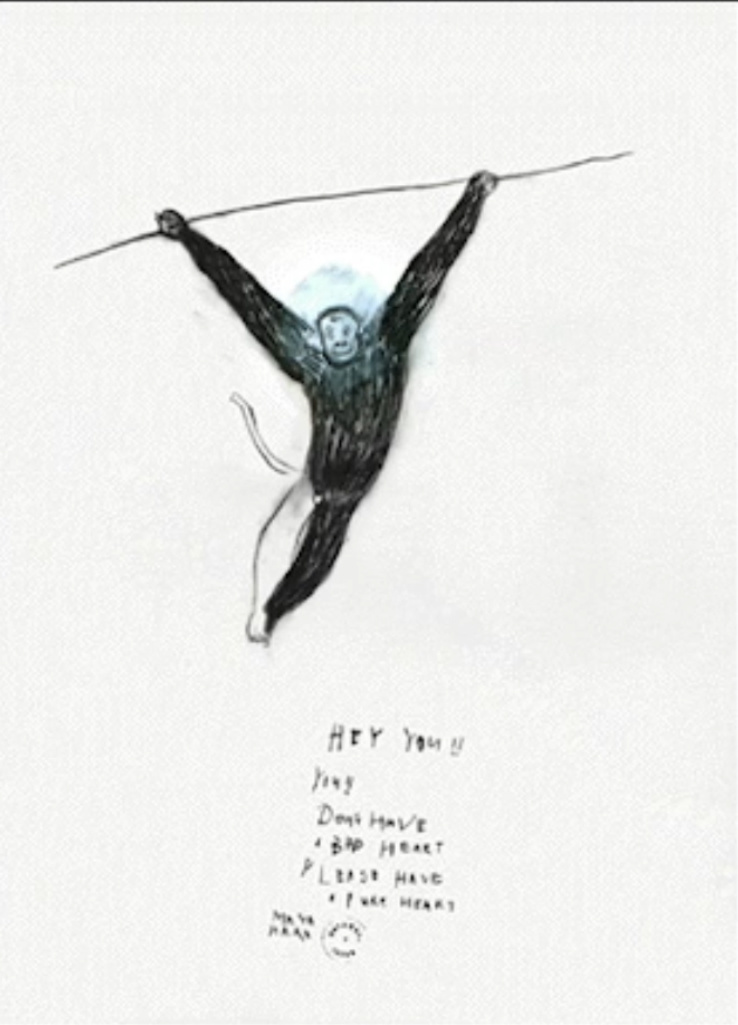 HEY YOU !!
YOU !!
DONT HAVE
A BAD HEART
PLEASE HAVE
A PURE HEART
MAYA